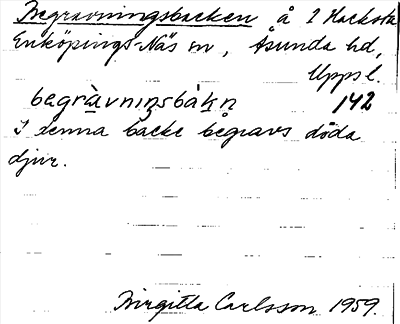 Begravningsbacken å 2 Hacksta
Enköpings-Näs sn, Åsunda hd,
Upps l.
begràvnıŋsbàkn 142
I denna backe begravs döda
djur.
Birgitta Carlsson 1959.